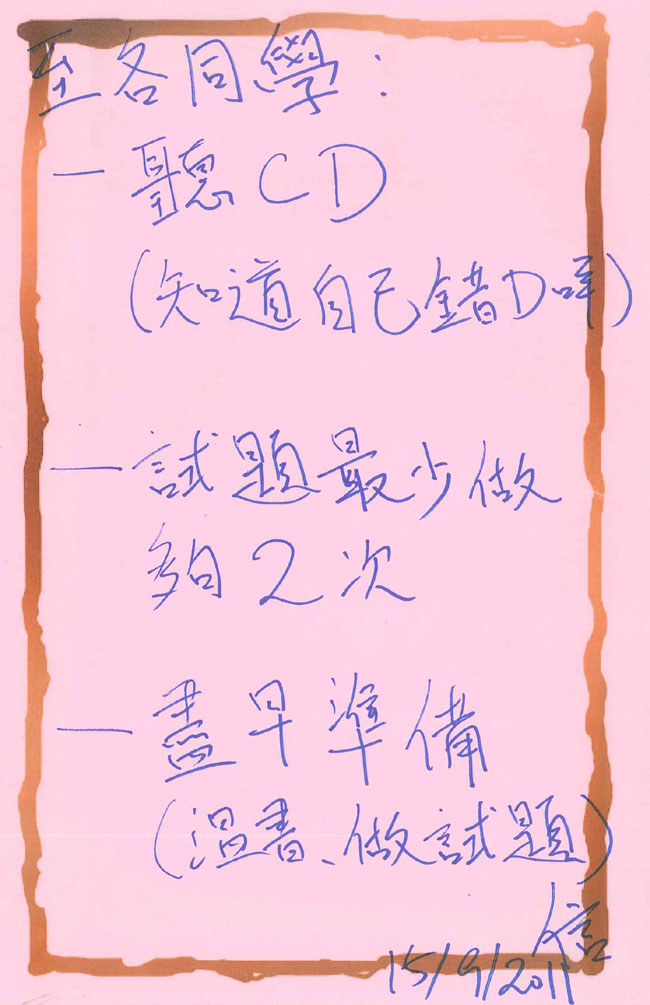 至各同學：
— 聽CD
(知道自己錯D咩)
— 試題最少做
夠2次
— 盡早準備
(溫書、做試題)
信
15/9/2011